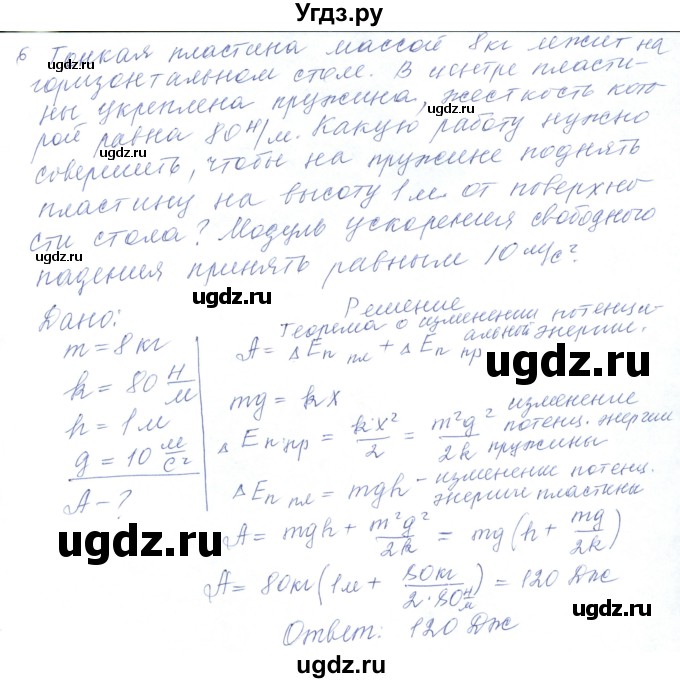 Угдз.ру
6 Тонкая пластина массой 8кг лежит на
горизонтальном столе. В центре пласти-
ны укреплена пружина, жесткость кото-
рой равна 80 Н/м. Какую работу нужно
совершить, чтобы на пружине поднять
пластину на высоту 1 м. от поверхно
сти стола? Модуль ускорения свободного
падения принять равным 10 м/с²
Дано:
m = 8 кг
k = 80 Н/м
h = 1 м
g = 10 м/с²
A - ?
Решение
Теорема о изменении потенци-
альной энергии.
A = ΔEп пл + ΔEп пр
mg = kx
ΔEп.пр = k·x²/2 = m²g²/2k изменение
потенц. энергии
пружины
ΔEп пл = mgh - изменение потенц.
энергии пластины
A = mgh + m²g²/2k = mg(h + mg/2k)
A = 80кг(1м + 80кг/2·80 Н/м) = 120 Дж
Ответ: 120 Дж
ugdz.ru
ugdz.ru
ugdz.ru
ugdz.ru
ugdz.ru
ugdz.ru
ugdz.ru
ugdz.ru
ugdz.ru
ugdz.ru
ugdz.ru
ugdz.ru
ugdz.ru